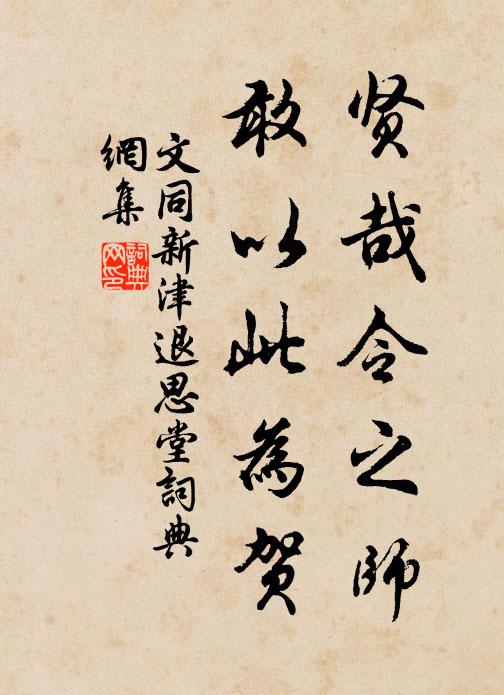 贤哉令之師
敢以此為贺
文同新津退思堂詞典
網集
詞典
网印